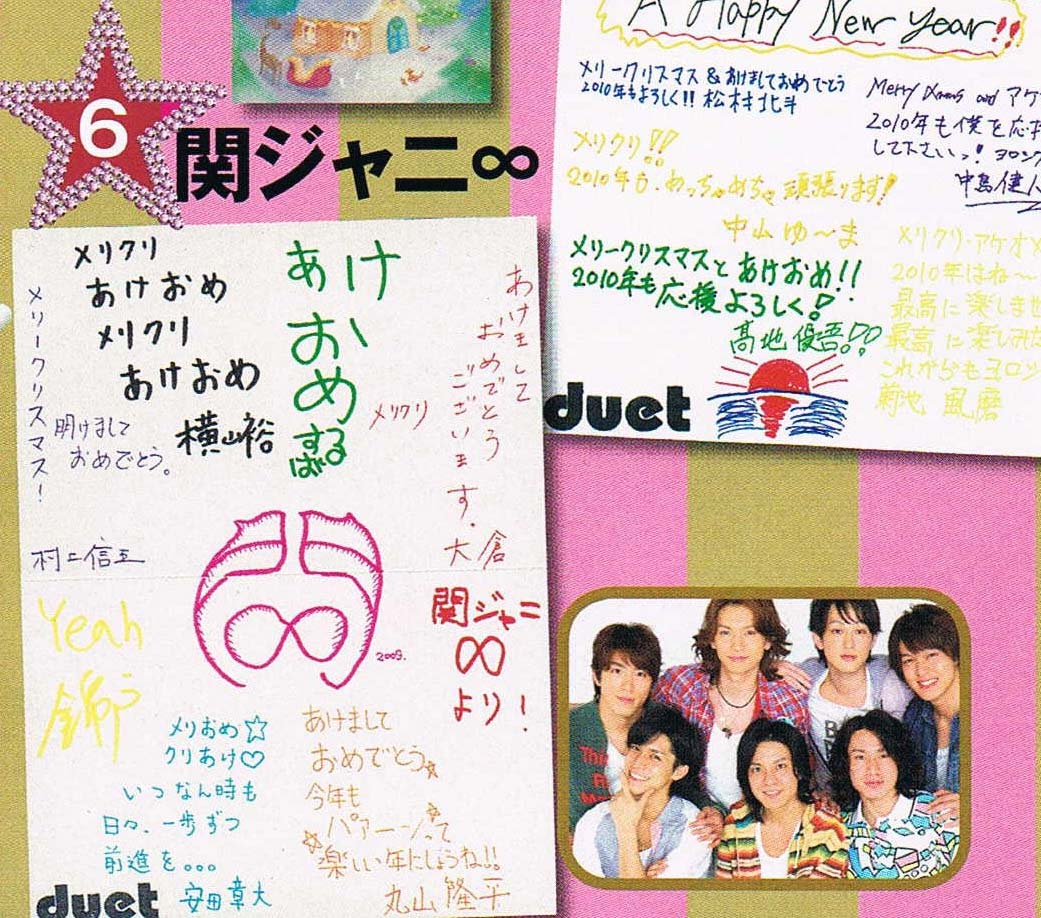 6
関ジャニ∞
メリクリ
あけおめ
メリクリ
あけおめ
横山裕
メリークリスマス!
明けまして
おめでとう。
村上信五
あけ
おめ
すばる
メリクリ
あけまして
おめでとう
ございます.
大倉
2009.
関ジャニ
∞
より!
Yeah
錦
メリおめ☆
クリあけ♡
いつなん時も
日々、一歩ずつ
前進を。。。
安田章大
あけまして
おめでとう☆
今年も
パァーンって
楽しい年にしようね!!
丸山隆平
duet
A Happy New Year!!
メリークリスマス&あけましておめでとう
2010年もよろしく!! 松村北斗
Merry Xmas and アケ
2010年も僕を応
して下さいっ! ヨロシク
中島健人
メリクリ!!
2010年も、めっちゃめちゃ頑張ります!
中山ゆ〜ま
メリークリスマスとあけおめ!!
2010年も応援よろしく!
髙地優吾!!
メリクリ・アケオメ
2010年はね〜
最高に楽しませ
最高に楽しみた
これからもヨロシ
菊池風磨
duet